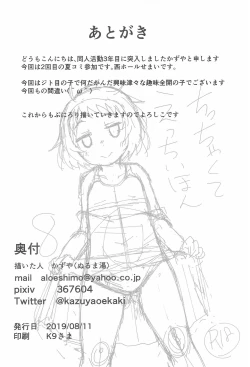 あとがき
どうもこんにちは、同人活動3年目に突入しましたかずやと申します
今回は2回目の夏コミ参加です、西ホールせまいです。
今回はジト目の子で何だかんだ興味津々な趣味全開の子でございます
今回もの間違い(´ω`)
これからもぷにろり描いていきますのでよろしこです
奥付
描いた人 かずや(ぬるま湯)
mail aloeshimo@yahoo.co.jp
pixiv 367604
Twitter @kazuyaoekaki
発行日 2019/08/11
印刷 K9さま